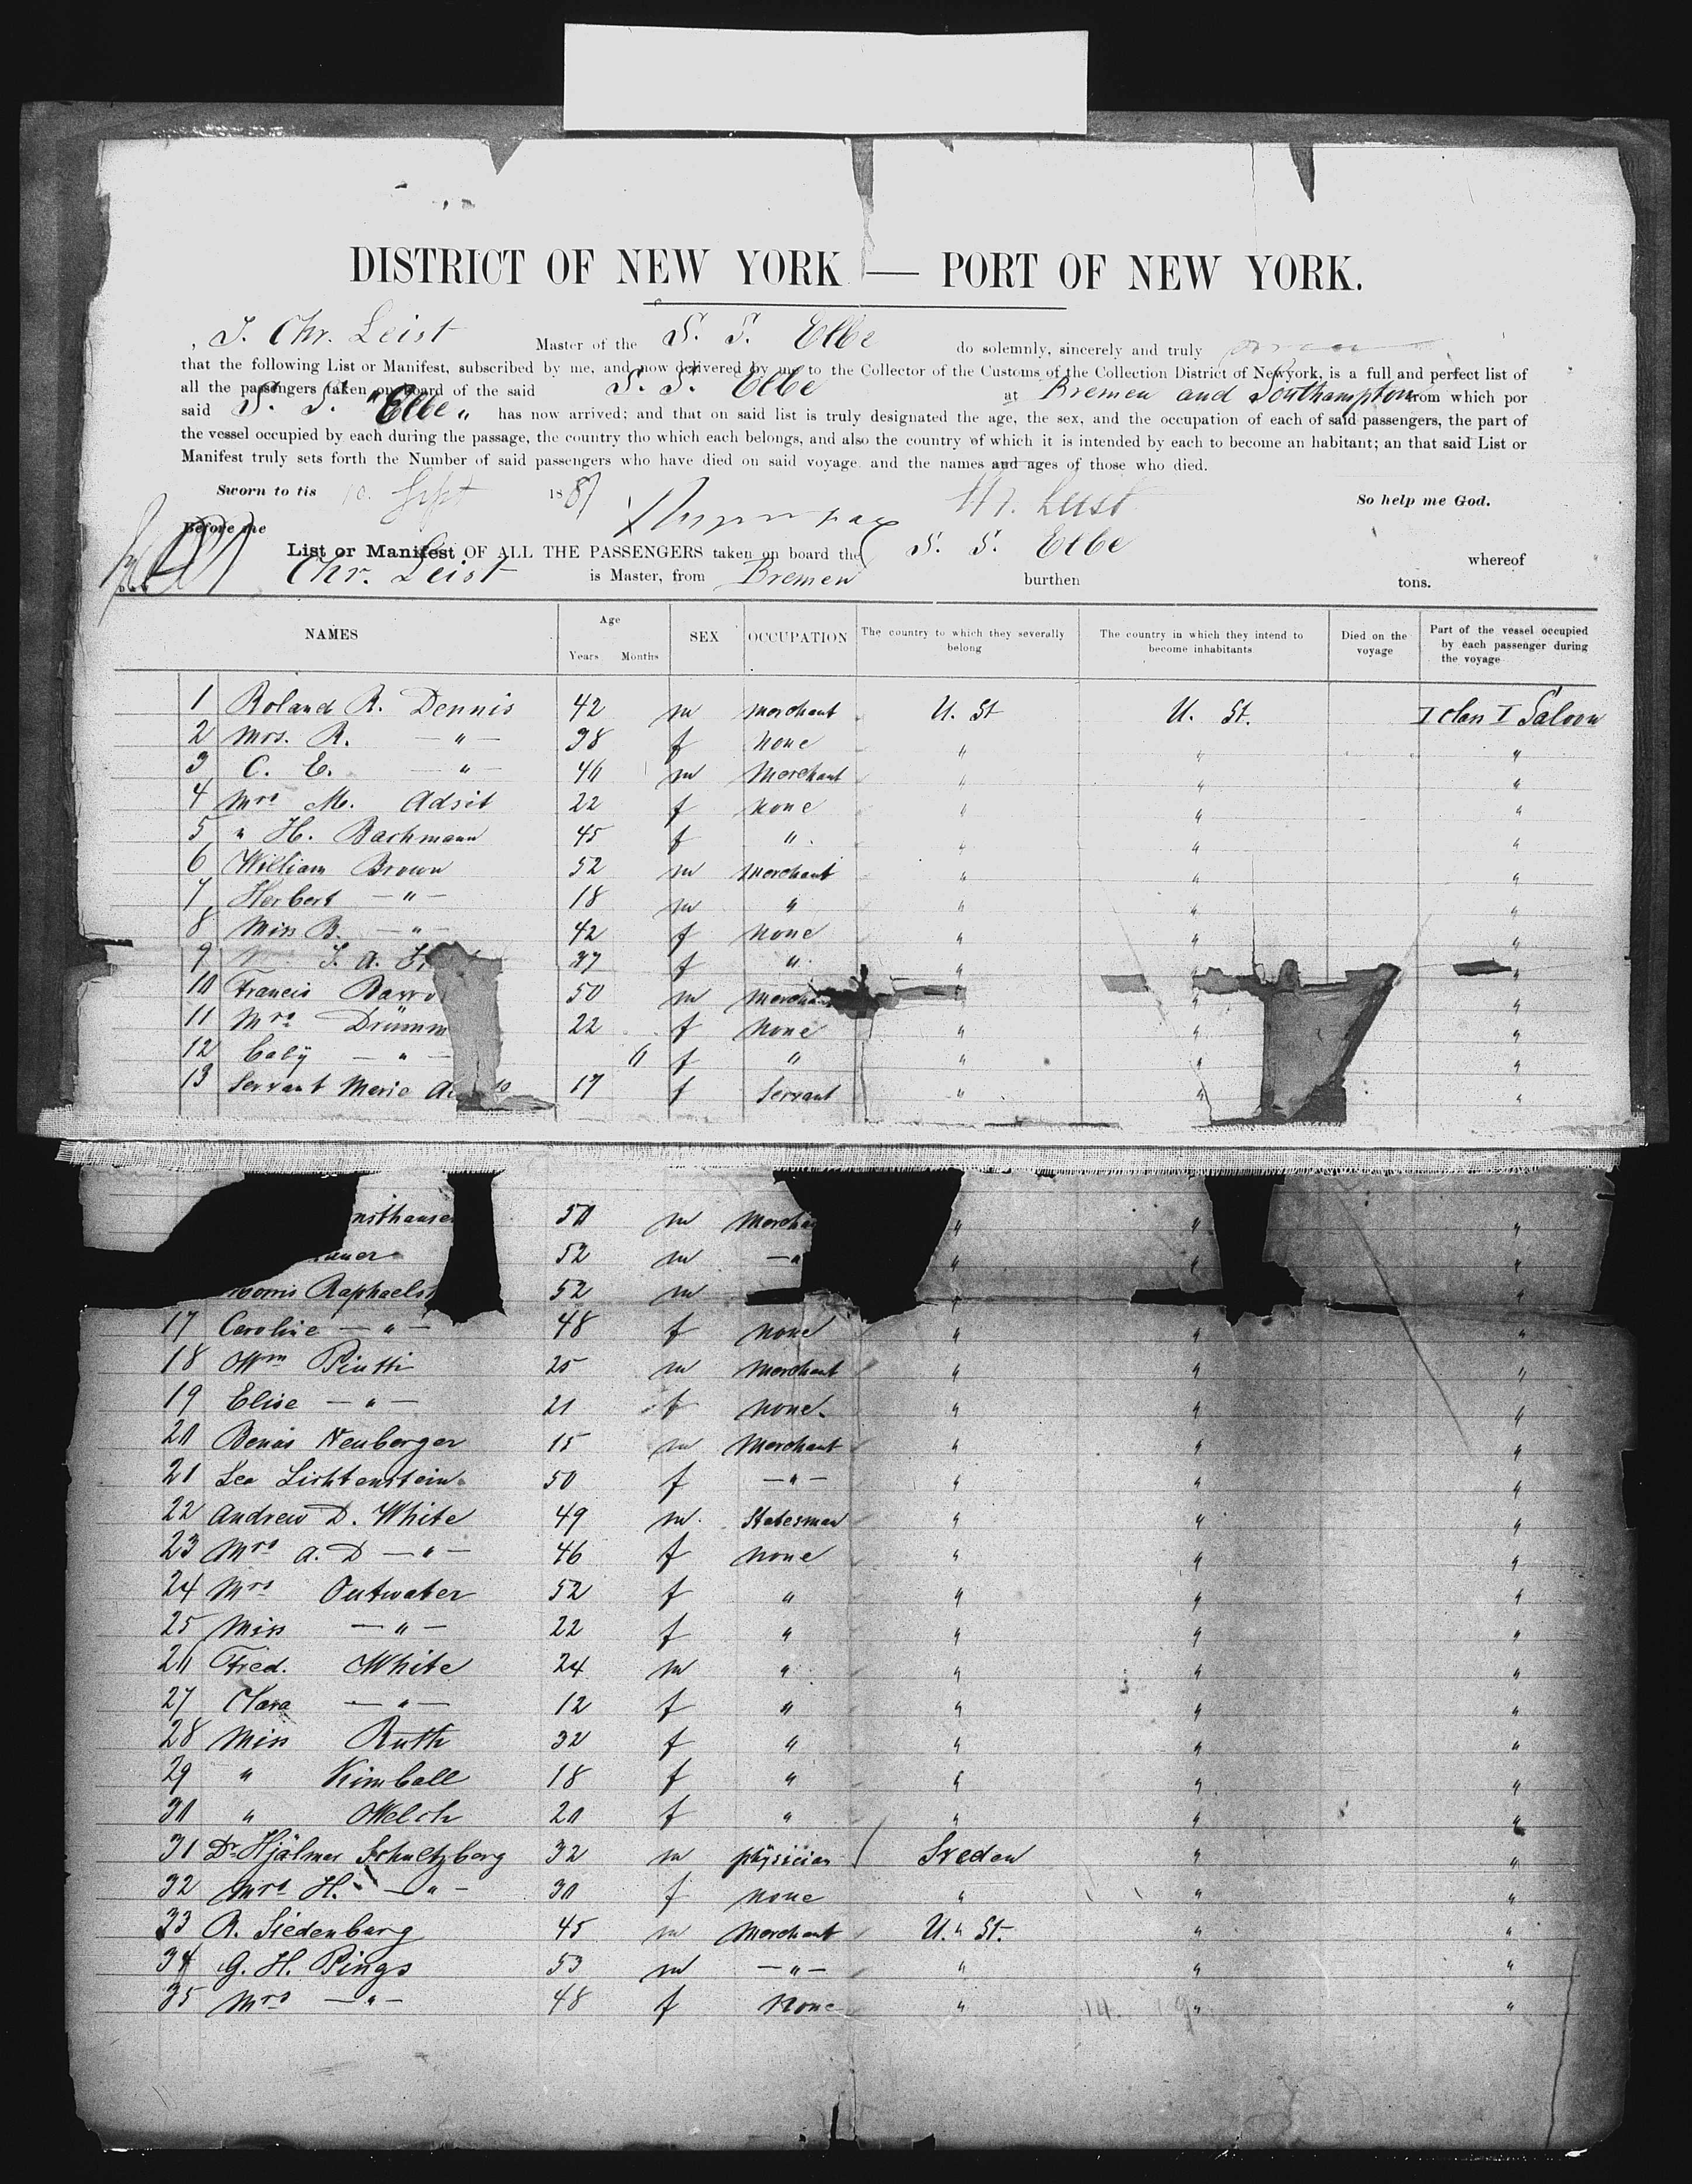 DISTRICT OF NEW YORK — PORT OF NEW YORK.
J. Chr. Leist Master of the S. S. Elbe do solemnly, sincerely and truly
that the following List or Manifest, subscribed by me, and now delivered by me to the Collector of the Customs of the Collection District of Newyork, is a full and perfect list of
all the passengers taken on board of the said S. S. Elbe at Bremen and Southampton from which por
said S. S. "Elbe" has now arrived; and that on said list is truly designated the age, the sex, and the occupation of each of said passengers, the part of
the vessel occupied by each during the passage, the country tho which each belongs, and also the country of which it is intended by each to become an habitant; an that said List or
Manifest truly sets forth the Number of said passengers who have died on said voyage and the names and ages of those who died.
Sworn to tis 10. Sept 1881 Chr. Leist So help me God.
Before me
List or Manifest OF ALL THE PASSENGERS taken on board the S. S. Elbe whereof
Chr. Leist is Master, from Bremen burthen tons.
NAMES Age Years Months SEX OCCUPATION The country to which they severally belong The country in which they intend to become inhabitants Died on the voyage Part of the vessel occupied by each passenger during the voyage
1 Roland R. Dennis 42 m merchant U. St U. St. I class I Saloon
2 Mrs. R. — " — 38 f none " " "
3 C. E. — " — 46 m Merchant " " "
4 Mrs M. Adsit 22 f none " " "
5 " H. Bachmann 45 f " " " "
6 William Brown 52 m merchant " " "
7 Herbert — " — 18 m " " " "
8 Miss B. — " — 42 f none " " "
9 J. A. 37 f " " " "
10 Francis Barro 50 m mercha " " "
11 Mrs Drümm 22 f none " " "
12 baby — " — 11 f " " " "
13 Servant Marie 17 f Servant " " "
nsthause 50 m Mercha " " "
auer 52 m — " " " "
morris Raphaels 52 m " " "
17 Caroline — " — 48 f none " " "
18 Wm Piutti 25 m Merchant " " "
19 Elise — " — 21 f none. " " "
20 Benas Neuberger 15 m Merchant " " "
21 Lea Lichtenstein 50 f — " — " " "
22 Andrew D. White 49 m. Statesman " " "
23 Mrs A. D — " — 46 f none " " "
24 Mrs Outwater 52 f " " " "
25 Miss — " — 22 f " " " "
26 Fred. White 24 m " " " "
27 Clara — " — 12 f " " " "
28 Miss Ruth 32 f " " " "
29 " Kimball 18 f " " " "
30 " Welch 20 f " " " "
31 Dr Hjälmar Schultzberg 32 m physician Sveden " "
32 Mrs H. — " — 30 f none " " "
33 R. Siedenburg 45 m Merchant U. " St. " "
34 G. H. Pings 53 m — " — " " "
35 Mrs — " — 48 f none " " "